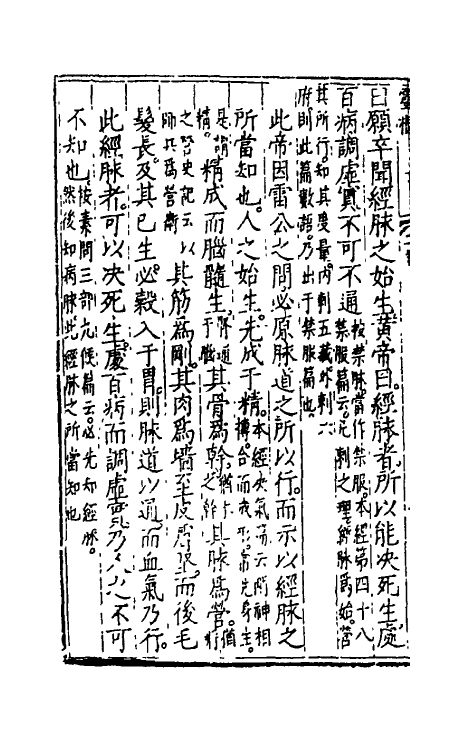 曰願卒聞經脉之始生黃帝曰經脉者所以能決死生處
百病調虛實不可不通按禁脉當作禁服本經第四十八
禁服篇云凡刺之理經脉爲始營
其所行知其度量內刺五藏外刺六
府則此篇數語乃出于禁服篇也
此帝因雷公之問必原脉道之所以行而示以經脉之
所當知也人之始生先成于精本經決氣篇云兩神相
搏合而成形常先身生
是謂精精成而腦髓生髓通于腦其骨爲幹之幹其脉爲營
之營史記云以師兵爲營衛其筋爲剛其肉爲墻至皮膚堅而後毛
髮長及其已生必穀入于胃則脉道以通而血氣乃行
此經脉者可以決死生處百病而調虛實乃不可
不知也按素問三部九候篇云必先知經脉
然後知病脉此經脉之所當知也